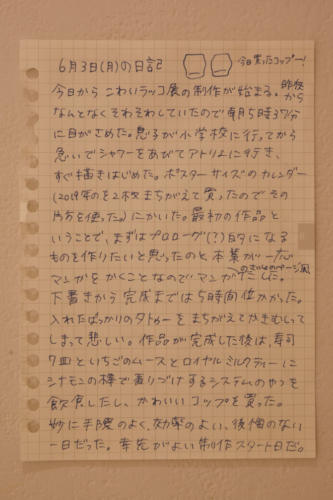 6月3日(月)の日記
今日買ったコップー!
今日から こわいラッコ展の制作が始まる。昨夜から
なんとなくそわそわしていたので朝5時37分
に目がさめた。息子が小学校に行ってから
急いでシャワーをあびてアトリエに行き、
すぐ描きはじめた。ポスターサイズのカレンダー
(2019年のを2枚まちがえて買ったので その
片方を使った)にかいた。最初の作品と
いうことで、まずはプロローグ(?)的になる
ものを作りたいと思ったのと 本業が一応
マンガをかくことなのでマンガのページ風にした。
下書きから完成までは5時間位かかった。
入れたばっかりのタトゥーを まちがえてかきむしって
しまって悲しい。作品が完成した後は、寿司
7皿といちごのムースとロイヤルミルクティーに
シナモンの棒で香りづけするシステムのやつを
飲食したし、かわいいコップを買った。
妙に手際のよく、効率のよい、後悔のない
一日だった。幸先がよい制作スタート日だ。